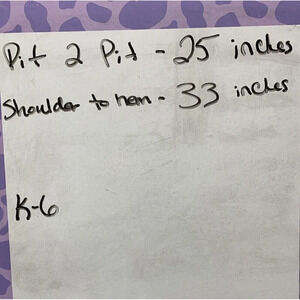 Pit 2 Pit - 25 inches
Shoulder to hem - 33 inches
K-6